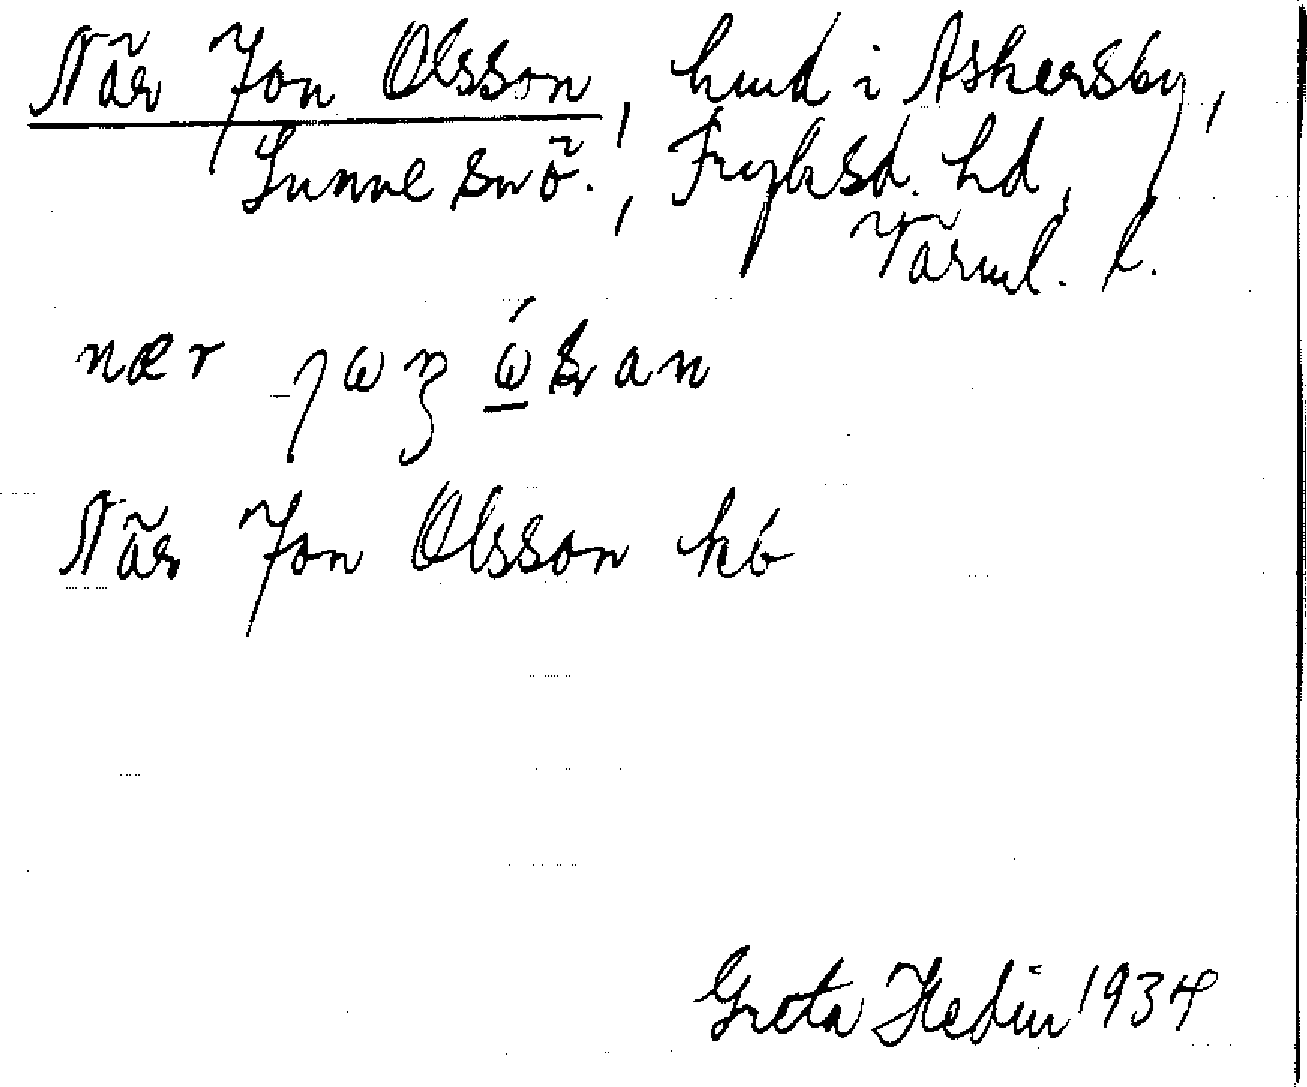 När Jon Olsson, hmd i Askersby,
Sunne snö., Fryksd. hd,
Värml. l.
När Jon Olsson kb
Greta Hedin 1934